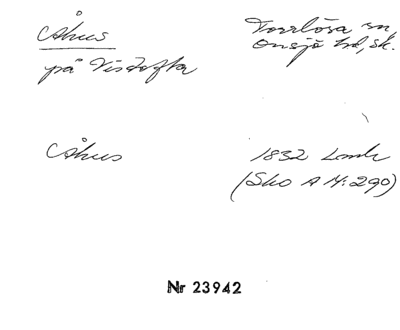 Åhus Torrlösa sn,
på Vistofta Onsjö hd, Sk.
Åhus 1832 Lomh
(Sko A M: 290)
Nr 23942